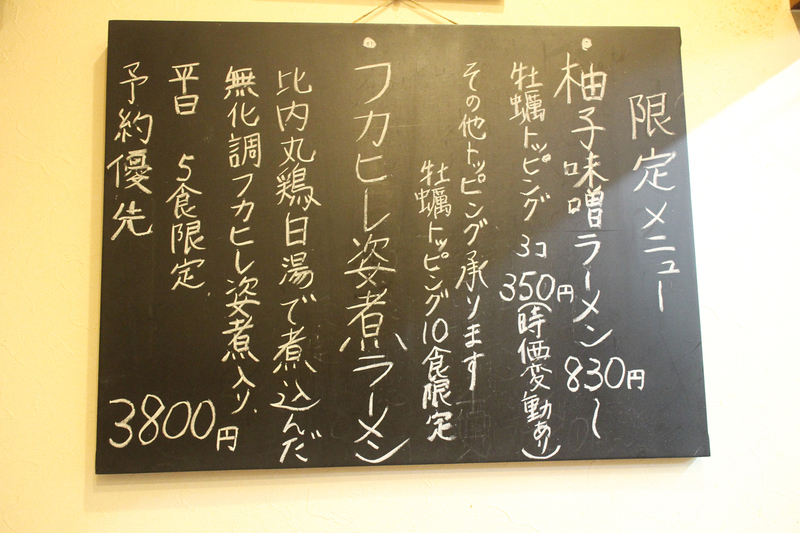 限定メニュー
柚子味噌ラーメン 830円〜
牡蠣トッピング 3コ 350円(時価変動あり)
その他トッピング承ります
牡蠣トッピング10食限定
フカヒレ姿煮ラーメン
比内丸鶏白湯で煮込んだ
無化調フカヒレ姿煮入り、
平日 5食限定、
予約優先 3800円